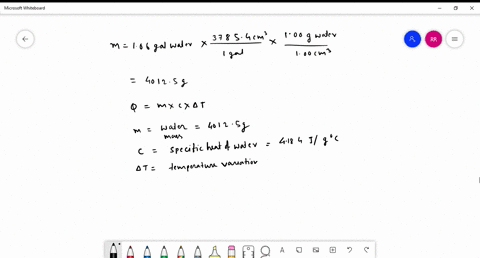 Microsoft Whiteboard
RR
m = 1.06 gal water × 3785.4 cm³ / 1 gal × 1.00 g water / 1.00 cm³
= 4012.5g
Q = m × c × ΔT
m = water mass = 4012.5g
C = specific heat of water = 4.184 J/g°C
ΔT = temperature variation